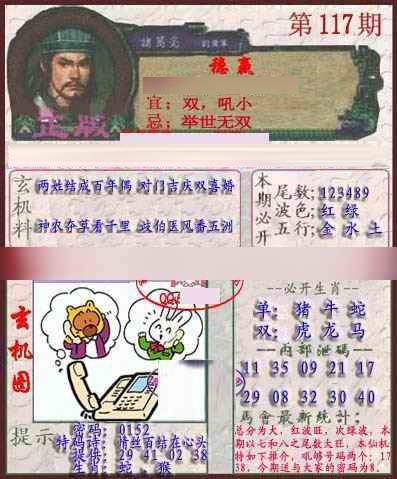 第117期
諸葛亮
穩贏
宜：双，吼小
忌：举世无双
正版
玄机料
两姓结成百年偶 对门吉庆双喜婚
神农夺草看千里 歧伯医风番五洲
本期必开
尾数;123489
波色;红 绿
五行;金 水 土
玄机图
QQ
--必开生肖--
单：猪 牛 蛇
双：虎 龙 马
--内部泄码--
11 35 09 21 17
29 08 32 30 40
馬會最新統計：
总分为大，红波旺，次绿波，本期以七和八之尾数大旺，本仙机特如下推介，吼够号码两个：1738，今期送与大家的密码为8.
提示
密码：0152
特码诗：情丝百结在心头
提供：29 41 02 38
生肖：蛇，猴